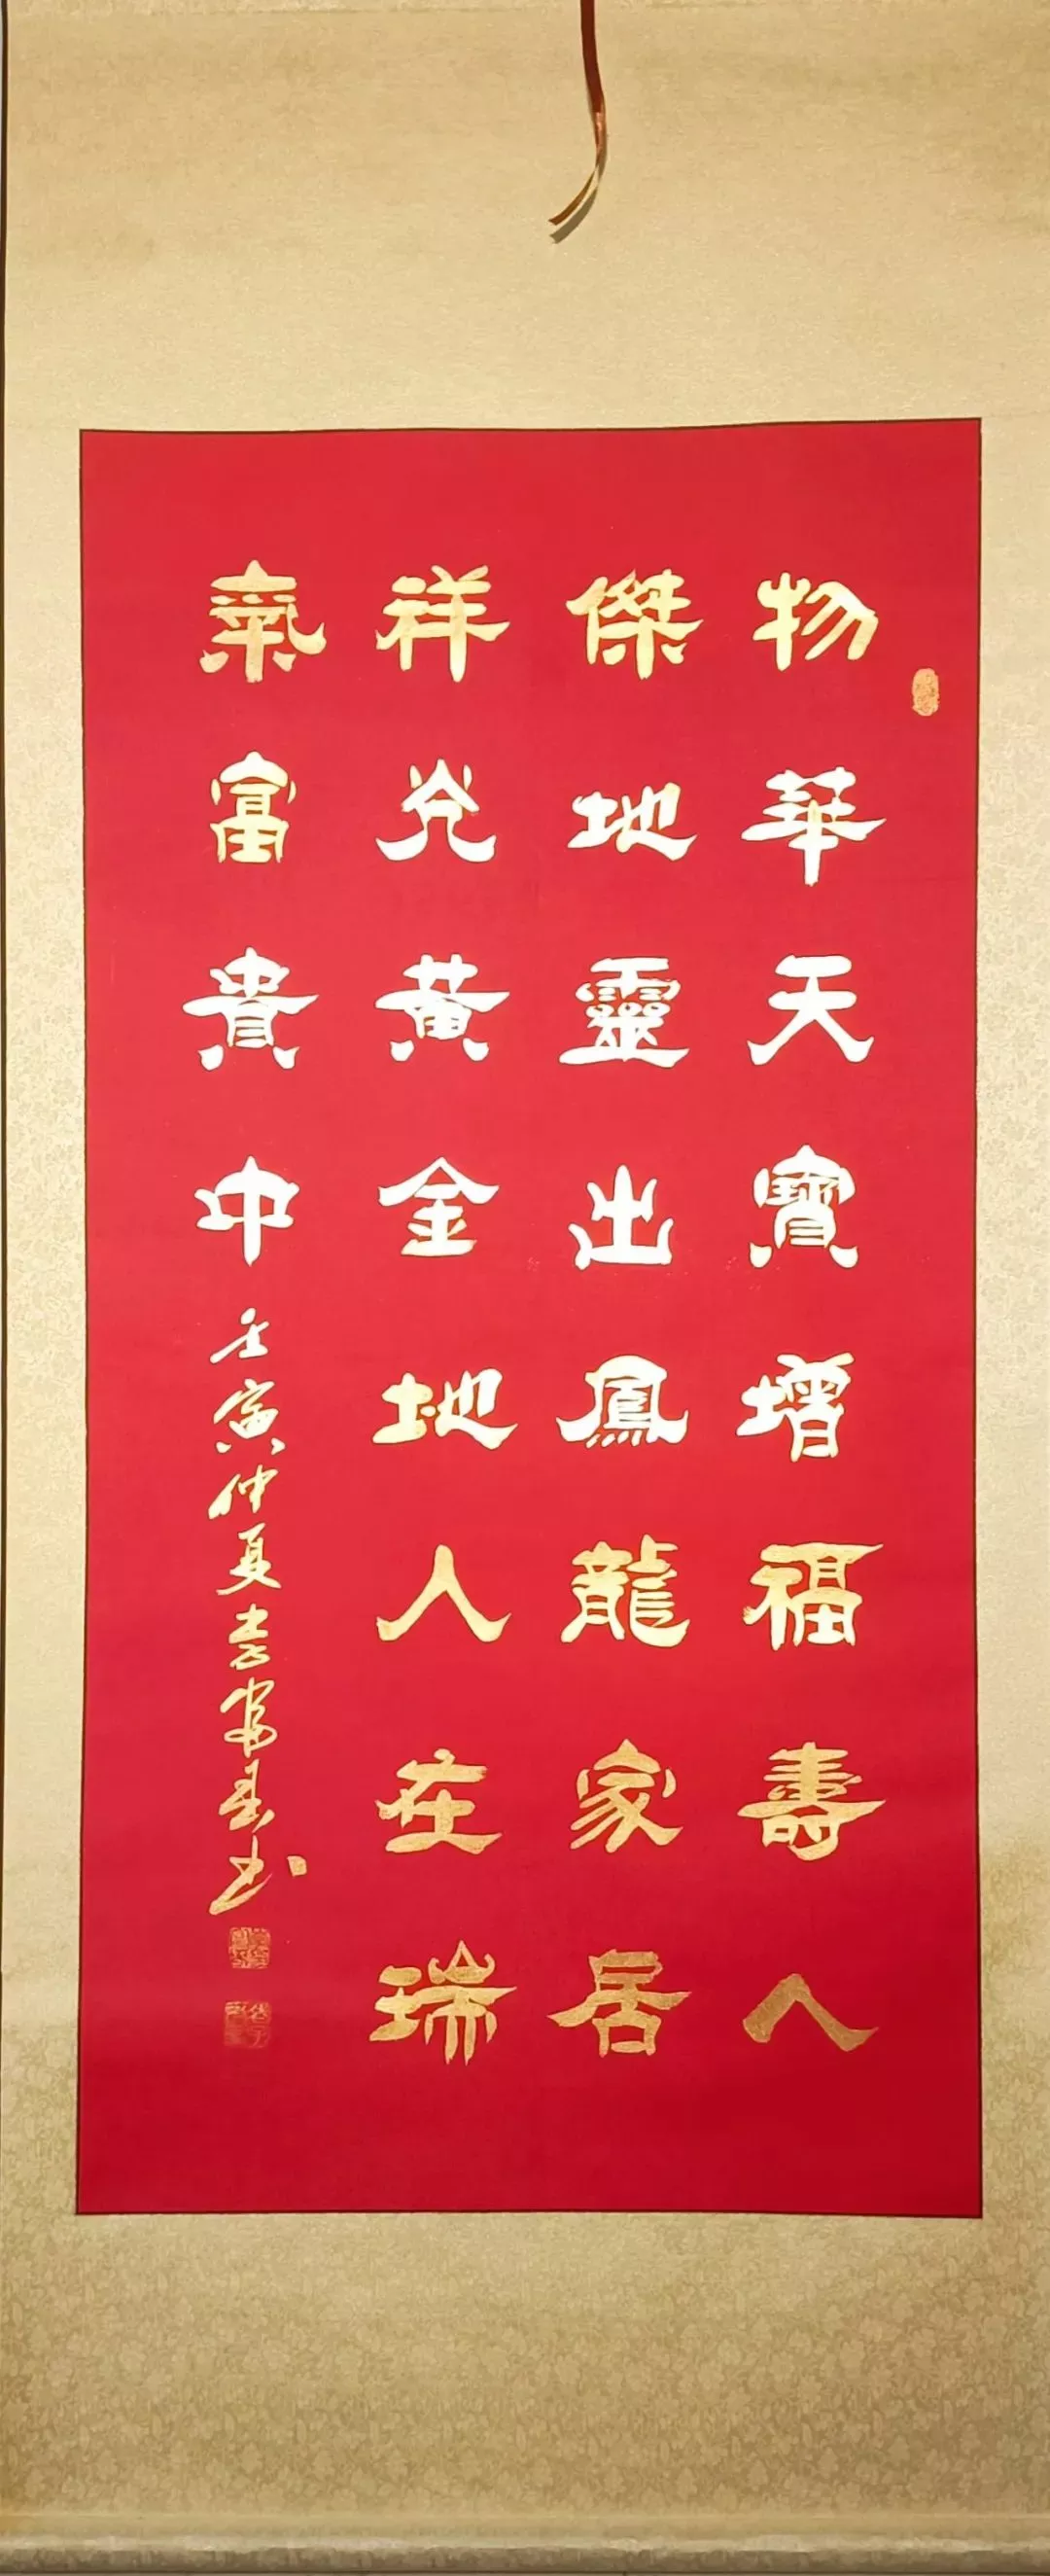 物華天寶增福壽人
傑地靈出鳳龍家居
祥光黃金地人在瑞
氣富貴中 壬寅仲夏 书